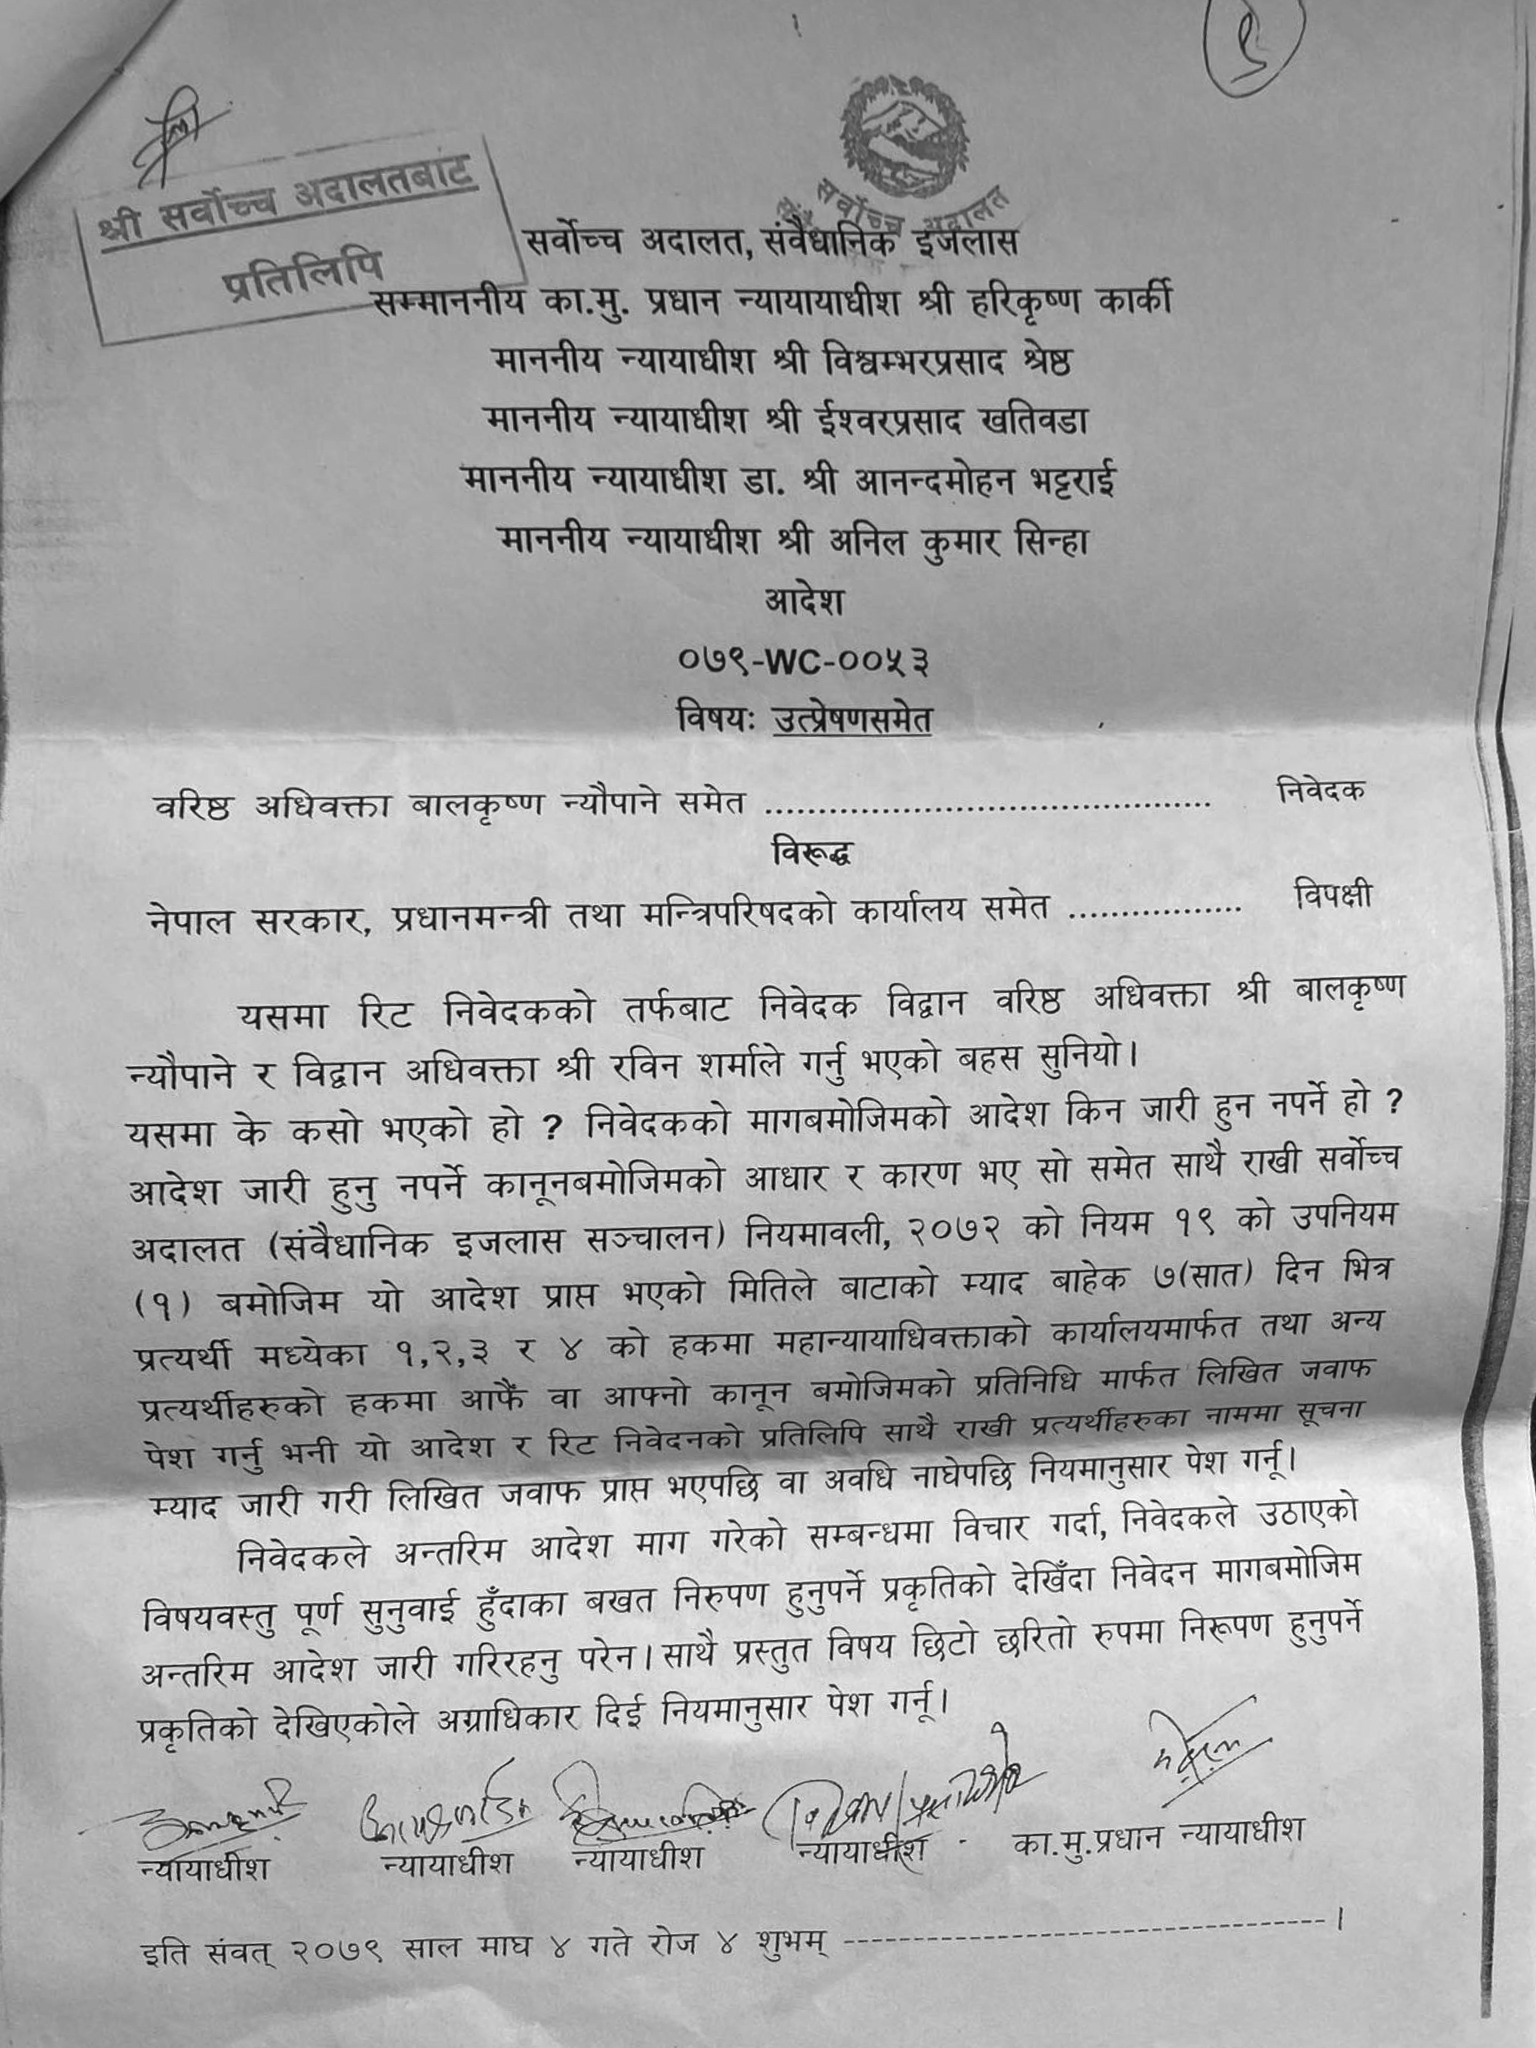 १
श्री सर्वोच्च अदालतबाट
प्रतिलिपि
सर्वोच्च अदालत
सर्वोच्च अदालत, संवैधानिक इजलास
सम्माननीय का.मु. प्रधान न्यायायाधीश श्री हरिकृष्ण कार्की
माननीय न्यायाधीश श्री विश्वम्भरप्रसाद श्रेष्ठ
माननीय न्यायाधीश श्री ईश्वरप्रसाद खतिवडा
माननीय न्यायाधीश डा. श्री आनन्दमोहन भट्टराई
माननीय न्यायाधीश श्री अनिल कुमार सिन्हा
आदेश
०७९-WC-००५३
विषयः उत्प्रेषणसमेत
वरिष्ठ अधिवक्ता बालकृष्ण न्यौपाने समेत ............................................ निवेदक
विरूद्ध
नेपाल सरकार, प्रधानमन्त्री तथा मन्त्रिपरिषदको कार्यालय समेत ................. विपक्षी
यसमा रिट निवेदकको तर्फबाट निवेदक विद्वान वरिष्ठ अधिवक्ता श्री बालकृष्ण
न्यौपाने र विद्वान अधिवक्ता श्री रविन शर्माले गर्नु भएको बहस सुनियो।
यसमा के कसो भएको हो ? निवेदकको मागबमोजिमको आदेश किन जारी हुन नपर्ने हो ?
आदेश जारी हुनु नपर्ने कानूनबमोजिमको आधार र कारण भए सो समेत साथै राखी सर्वोच्च
अदालत (संवैधानिक इजलास सञ्चालन) नियमावली, २०७२ को नियम १९ को उपनियम
(१) बमोजिम यो आदेश प्राप्त भएको मितिले बाटाको म्याद बाहेक ७(सात) दिन भित्र
प्रत्यर्थी मध्येका १,२,३ र ४ को हकमा महान्यायाधिवक्ताको कार्यालयमार्फत तथा अन्य
प्रत्यर्थीहरुको हकमा आफैं वा आफ्नो कानून बमोजिमको प्रतिनिधि मार्फत लिखित जवाफ
पेश गर्नु भनी यो आदेश र रिट निवेदनको प्रतिलिपि साथै राखी प्रत्यर्थीहरुका नाममा सूचना
म्याद जारी गरी लिखित जवाफ प्राप्त भएपछि वा अवधि नाघेपछि नियमानुसार पेश गर्नू।
निवेदकले अन्तरिम आदेश माग गरेको सम्बन्धमा विचार गर्दा, निवेदकले उठाएको
विषयवस्तु पूर्ण सुनुवाई हुँदाका बखत निरुपण हुनुपर्ने प्रकृतिको देखिँदा निवेदन मागबमोजिम
अन्तरिम आदेश जारी गरिरहनु परेन। साथै प्रस्तुत विषय छिटो छरितो रुपमा निरूपण हुनुपर्ने
प्रकृतिको देखिएकोले अग्राधिकार दिई नियमानुसार पेश गर्नू।
न्यायाधीश न्यायाधीश न्यायाधीश न्यायाधीश का.मु.प्रधान न्यायाधीश
इति संवत् २०७९ साल माघ ४ गते रोज ४ शुभम् -----------------------------------।